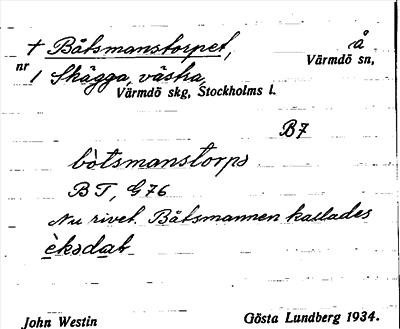 † Båtsmanstorpet, å
Värmdö sn,
nr 1 Skägga, västra,
Värmdö skg, Stockholms l.
B7
bòtsmanstorpə
BT, G76
Nu rivet. Båtsmannen kallades
èksdab
John Westin Gösta Lundberg 1934.